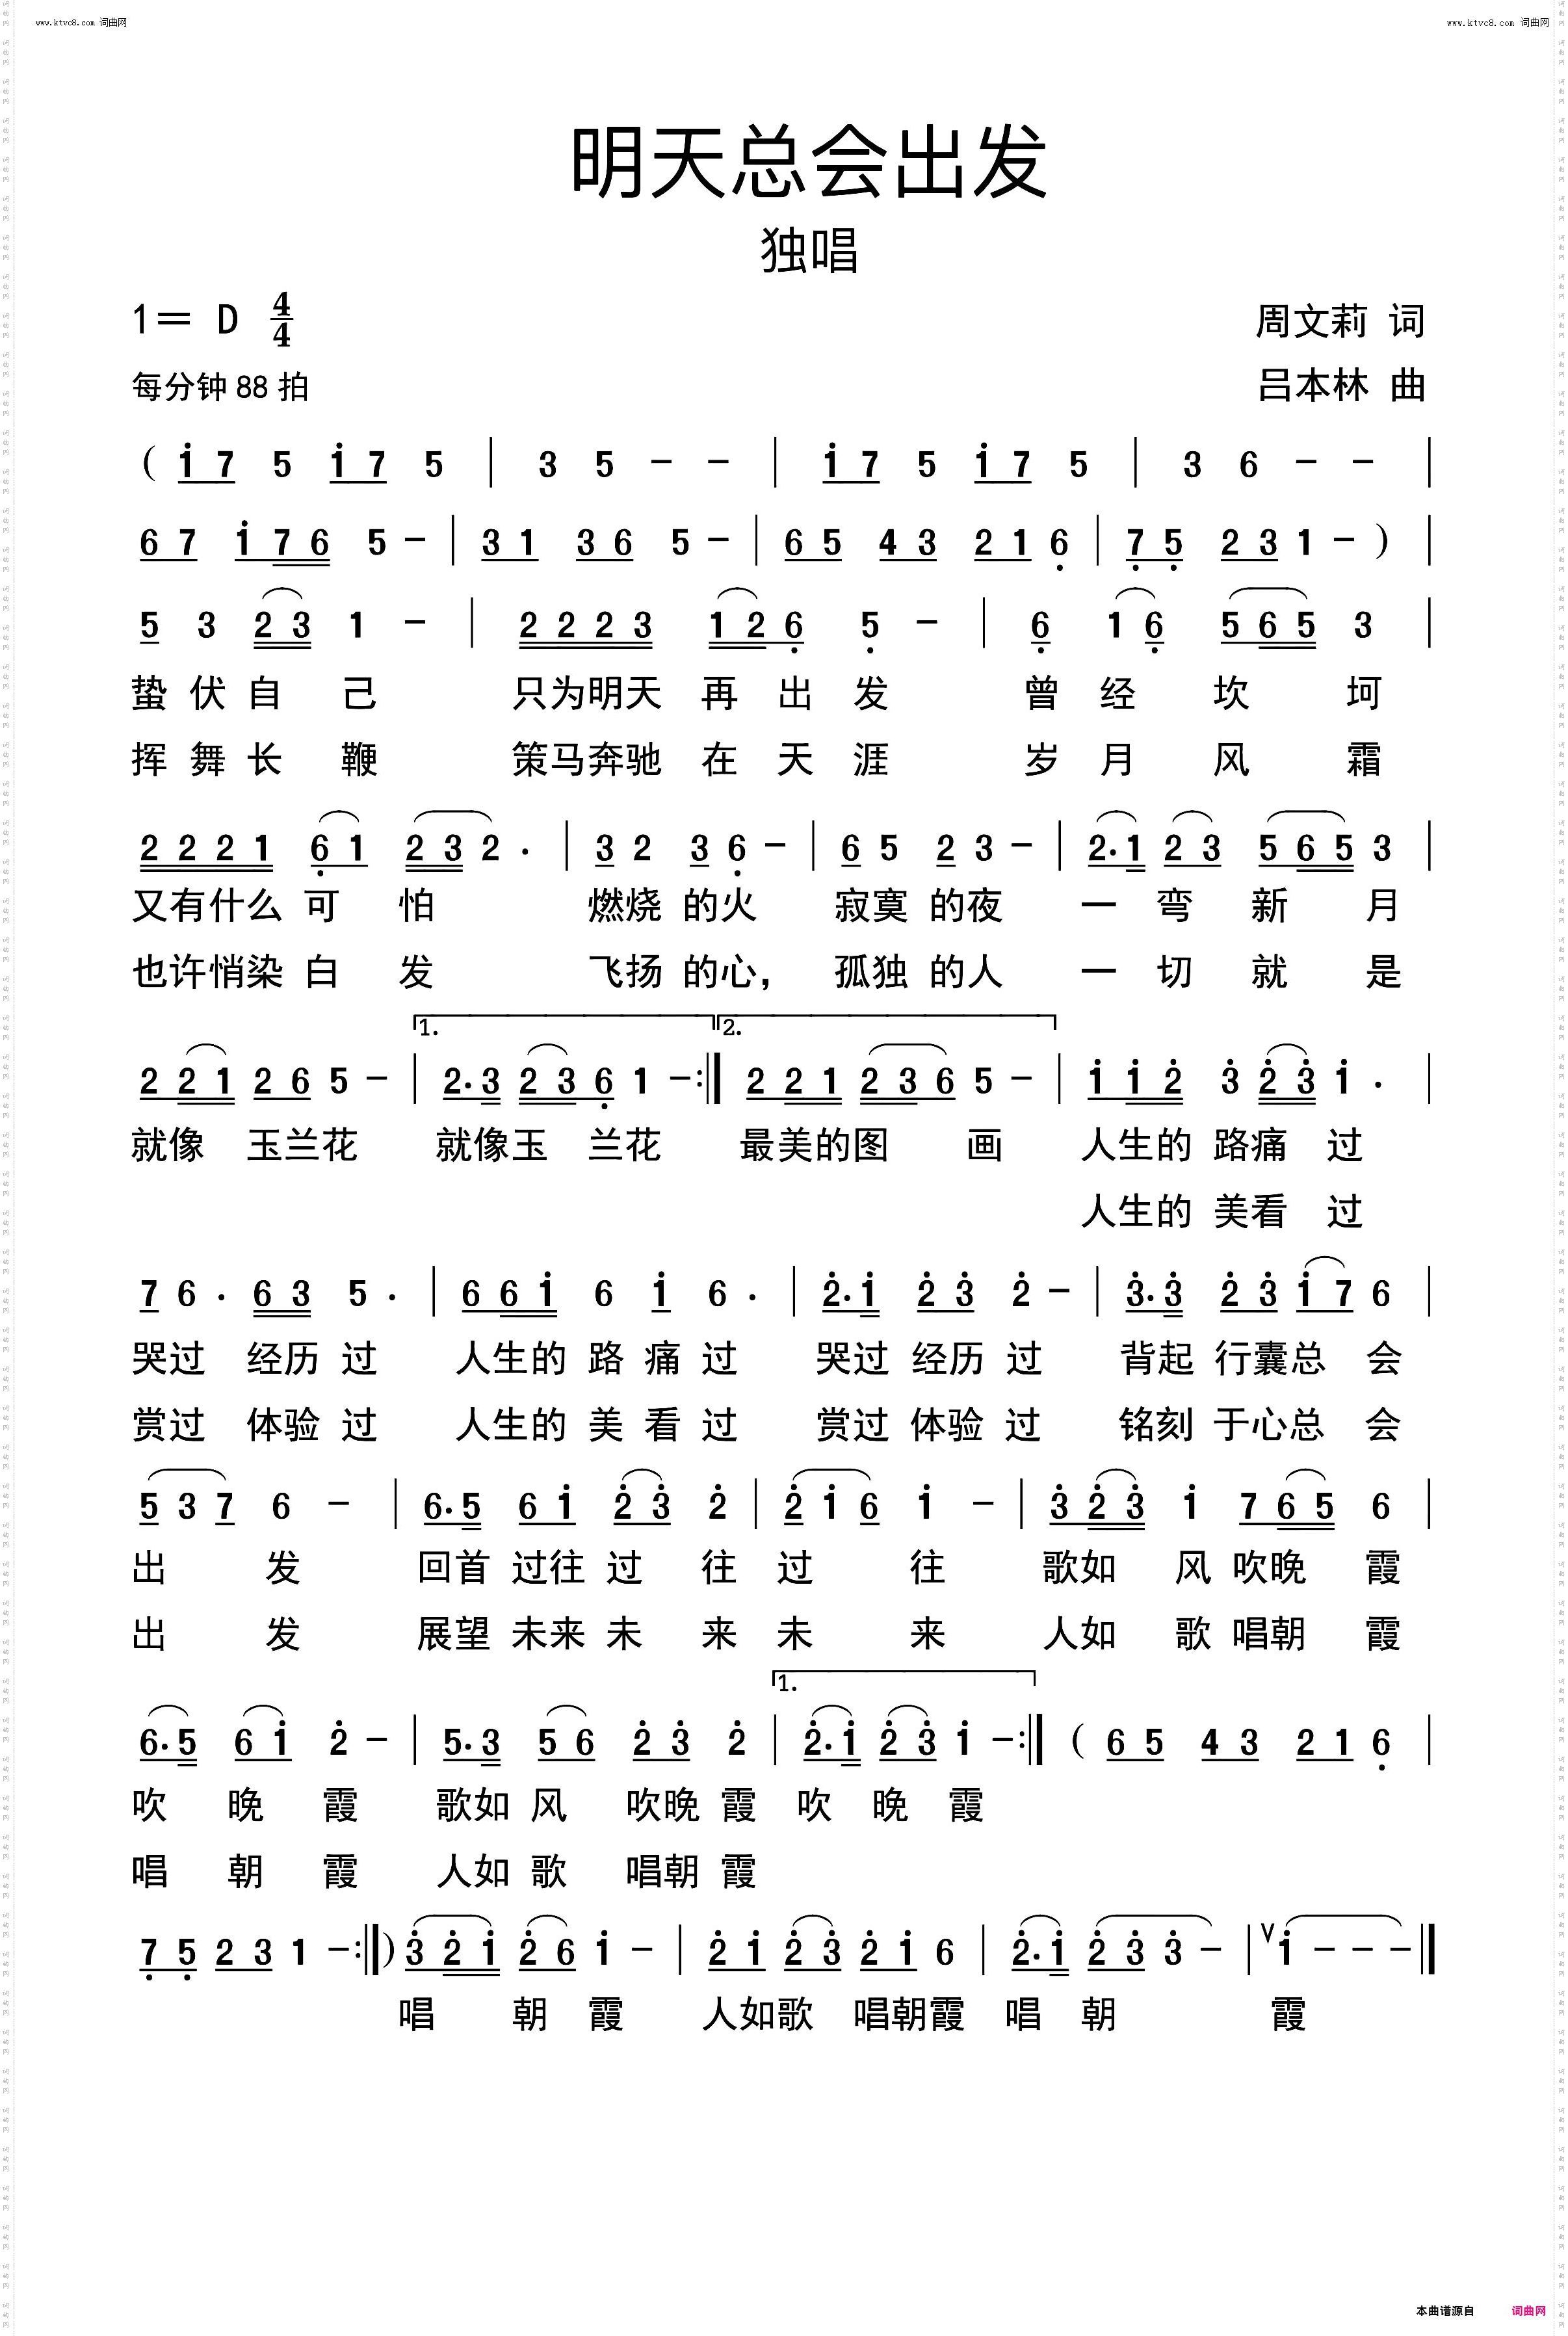 www.ktvc8.com 词曲网
www.ktvc8.com 词曲网
明天总会出发
独唱
1= D 4/4
周文莉 词
每分钟 88 拍
吕本林 曲
( i 7 5 i 7 5 | 3 5 - - | i 7 5 i 7 5 | 3 6 - - |
6 7 i 7 6 5 - | 3 1 3 6 5 - | 6 5 4 3 2 1 6 | 7 5 2 3 1 - ) |
5 3 2 3 1 - | 2 2 2 3 1 2 6 5 - | 6 1 6 5 6 5 3 |
蛰 伏 自 己 只为明天 再 出 发 曾 经 坎 坷
挥 舞 长 鞭 策马奔驰 在 天 涯 岁 月 风 霜
2 2 2 1 6 1 2 3 2 . | 3 2 3 6 - | 6 5 2 3 - | 2. 1 2 3 5 6 5 3 |
又有什么 可 怕 燃烧 的火 寂寞 的夜 一 弯 新 月
也许悄染 白 发 飞扬 的心, 孤独 的人 一 切 就 是
1. 2.
2 2 1 2 6 5 - | 2. 3 2 3 6 1 - :| 2 2 1 2 3 6 5 - | i i 2 3 2 3 i . |
就像 玉兰花 就像玉 兰花 最美的图 画 人生的 路痛 过
人生的 美看 过
7 6 . 6 3 5 . | 6 6 i 6 i 6 . | 2. i 2 3 2 - | 3. 3 2 3 i 7 6 |
哭过 经历 过 人生的 路 痛 过 哭过 经历 过 背起 行囊总 会
赏过 体验 过 人生的 美 看 过 赏过 体验 过 铭刻 于心总 会
5 3 7 6 - | 6. 5 6 i 2 3 2 | 2 i 6 i - | 3 2 3 i 7 6 5 6 |
出 发 回首 过往 过 往 过 往 歌如 风 吹晚 霞
出 发 展望 未来 未 来 未 来 人如 歌 唱朝 霞
1.
6. 5 6 i 2 - | 5. 3 5 6 2 3 2 | 2. i 2 3 i - :| ( 6 5 4 3 2 1 6 |
吹 晚 霞 歌如 风 吹晚 霞 吹 晚 霞
唱 朝 霞 人如 歌 唱朝 霞
7 5 2 3 1 - :| ) 3 2 i 2 6 i - | 2 i 2 3 2 i 6 | 2. i 2 3 3 - | ∨ i - - - |
唱 朝 霞 人如歌 唱朝霞 唱 朝 霞
本曲谱源自 词曲网